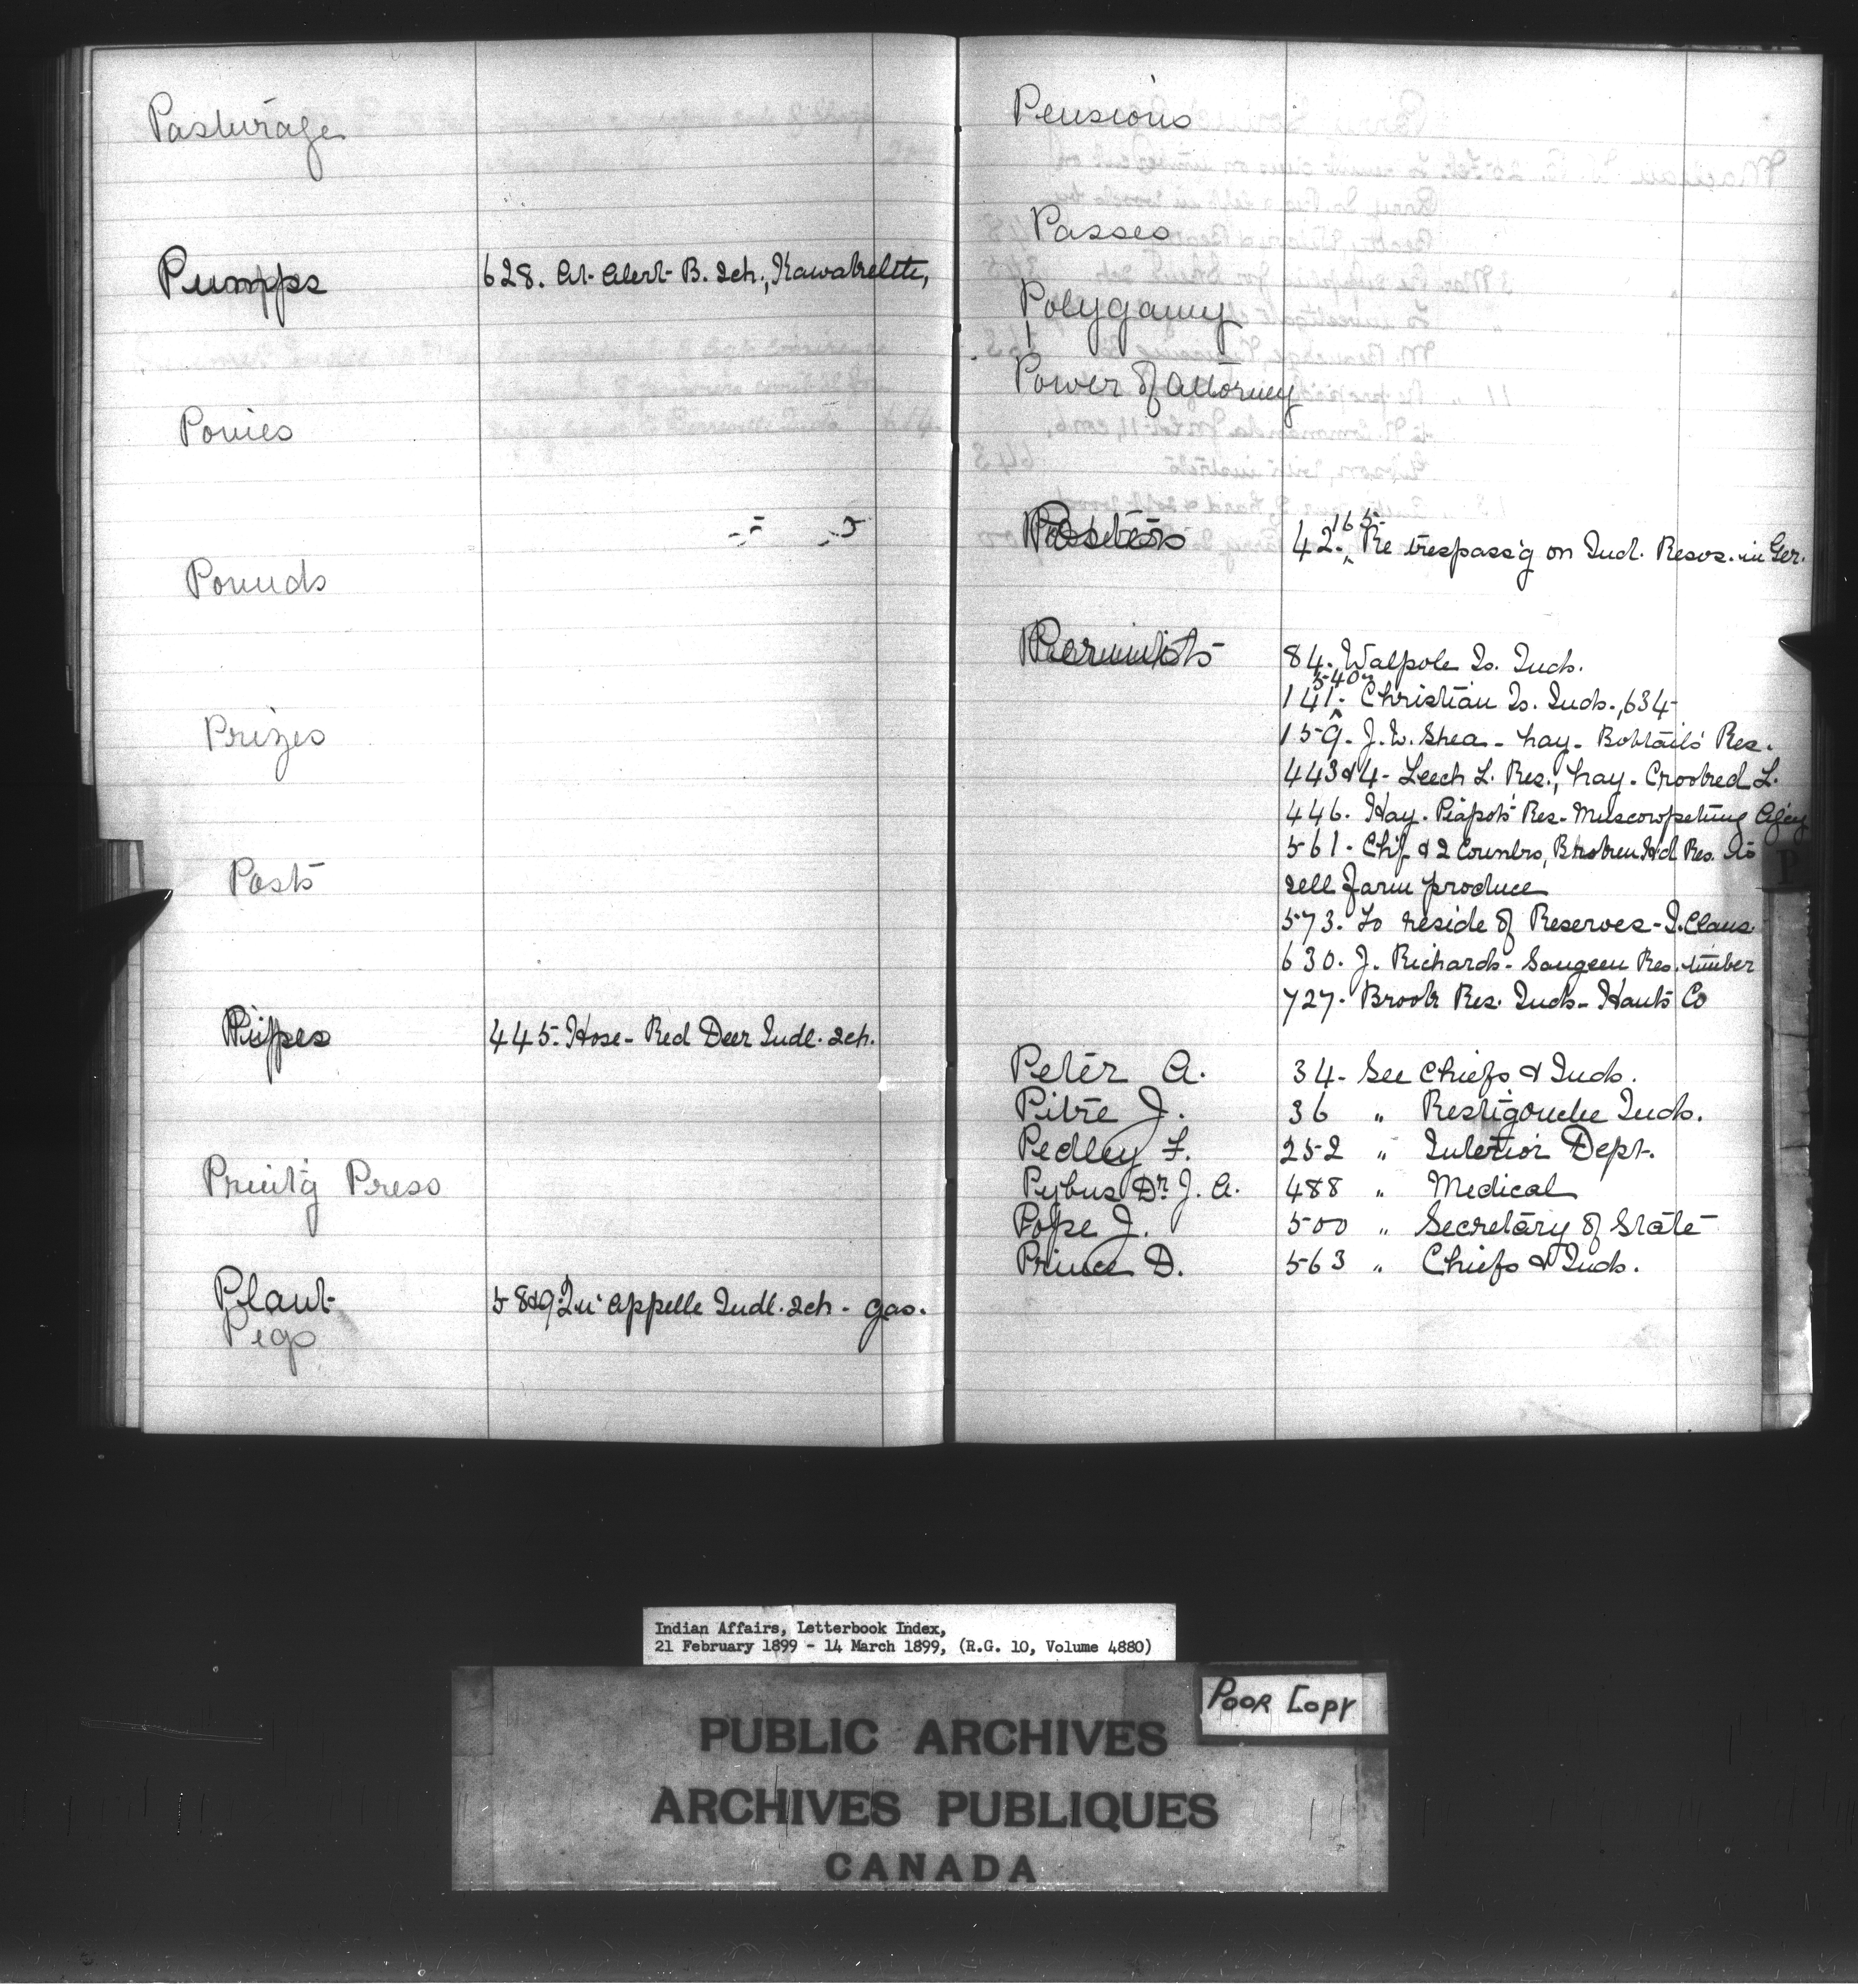 Pasturage
Pumps 628. At Alert B. Sch.,
Ponies
Pounds
Prizes
Posts
Pipes 445. Hose - Red Deer Indl. Sch.
Print'g Press
Plant 58&9. Qu'Appelle Indl. Sch. - gas.
Pegs
Pensions
Passes
Polygamy
Power of Attorney
Posters 42. 165- Re trespass'g on Ind. Resvs. in Ger.
Permits 84. Walpole Is. Inds.
141. 540 Christian Is. Inds., 634
159. J. W. Shea - hay - Bobtail's Res.
443&4 - Leech L. Res., hay - Crooked L.
446. Hay - Piapot's Res. Muscowpetung Ag'cy
561. Chf. & 2 Counlrs, Broken Hd Res. to
sell farm produce
573. To reside of Reserves - I. Claus
630. J. Richards - Saugeen Res. timber
727. Brook Res. Inds - Hants Co
Peter A. 34. See Chiefs & Inds.
Pitre J. 36 " Restigouche Inds.
Pedley F. 252 " Interior Dept.
Pybus Dr. J. A. 488 " Medical
Pope J. 500 " Secretary of State
Prince D. 563 " Chiefs & Inds.
P
Indian Affairs, Letterbook Index,
21 February 1899 - 14 March 1899, (R.G. 10, Volume 4880)
Poor Copy
PUBLIC ARCHIVES
ARCHIVES PUBLIQUES
CANADA